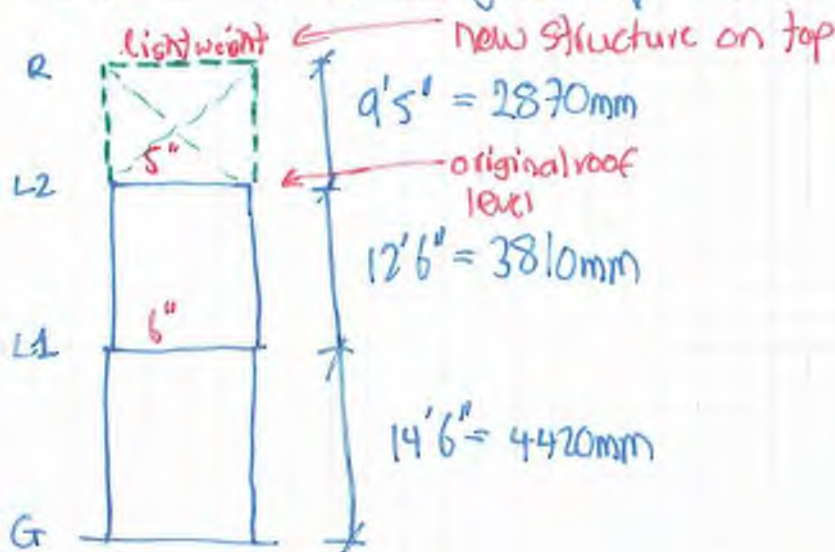 lightweight
new structure on top
R
9'5" = 2870mm
5"
original roof
level
L2
12'6" = 3810mm
6"
L1
14'6" = 4420mm
G